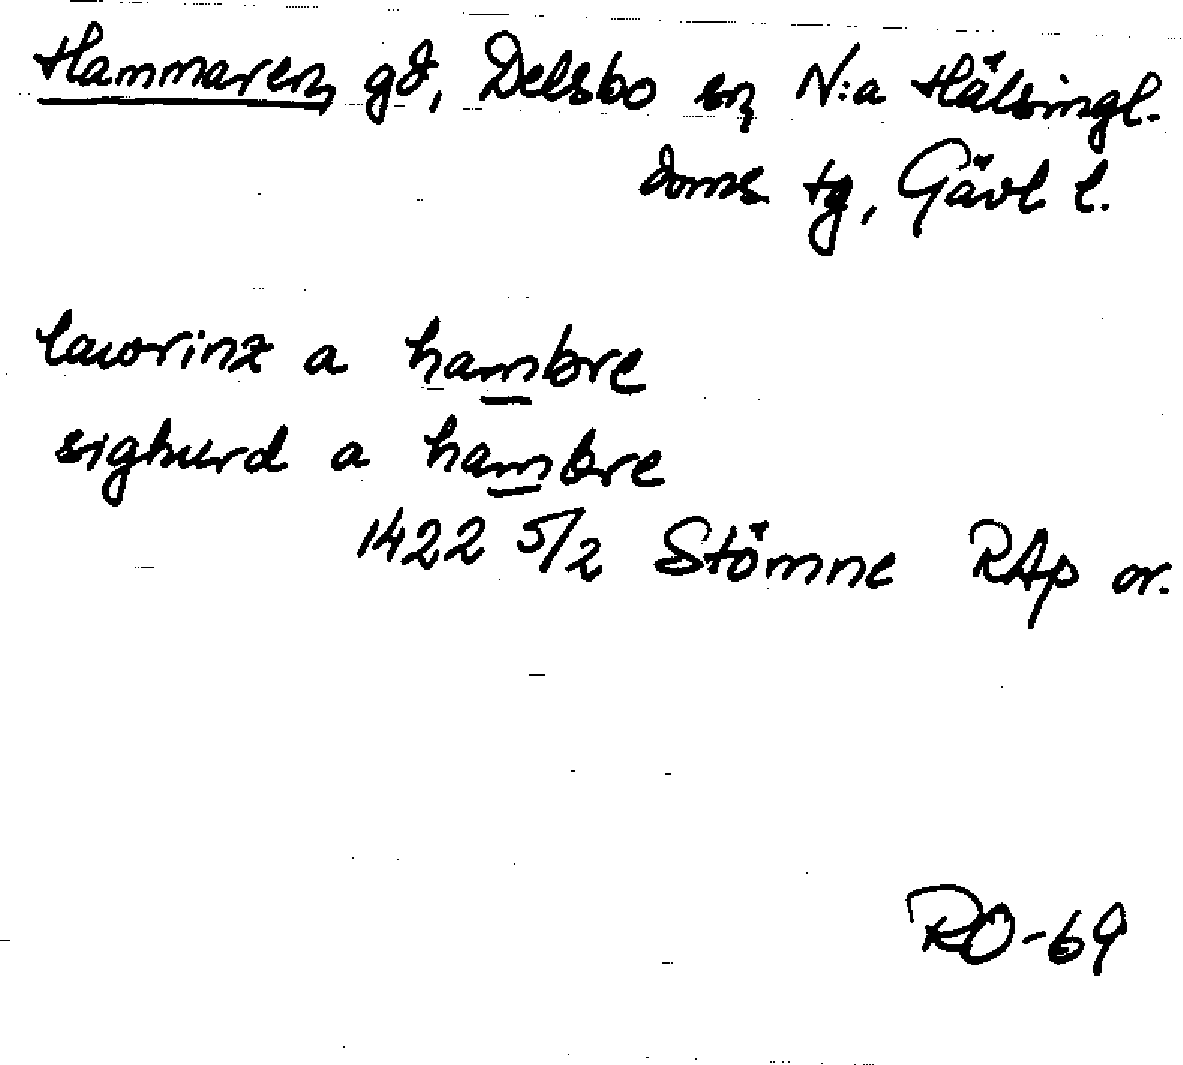 Hammaren, gd, Delsbo sn, N:a Hälsingl.
doms tg, Gävl l.
lawrinz a hambre
sighurd a hambre
1422 5/2 Stömne RAp or.
RO-69